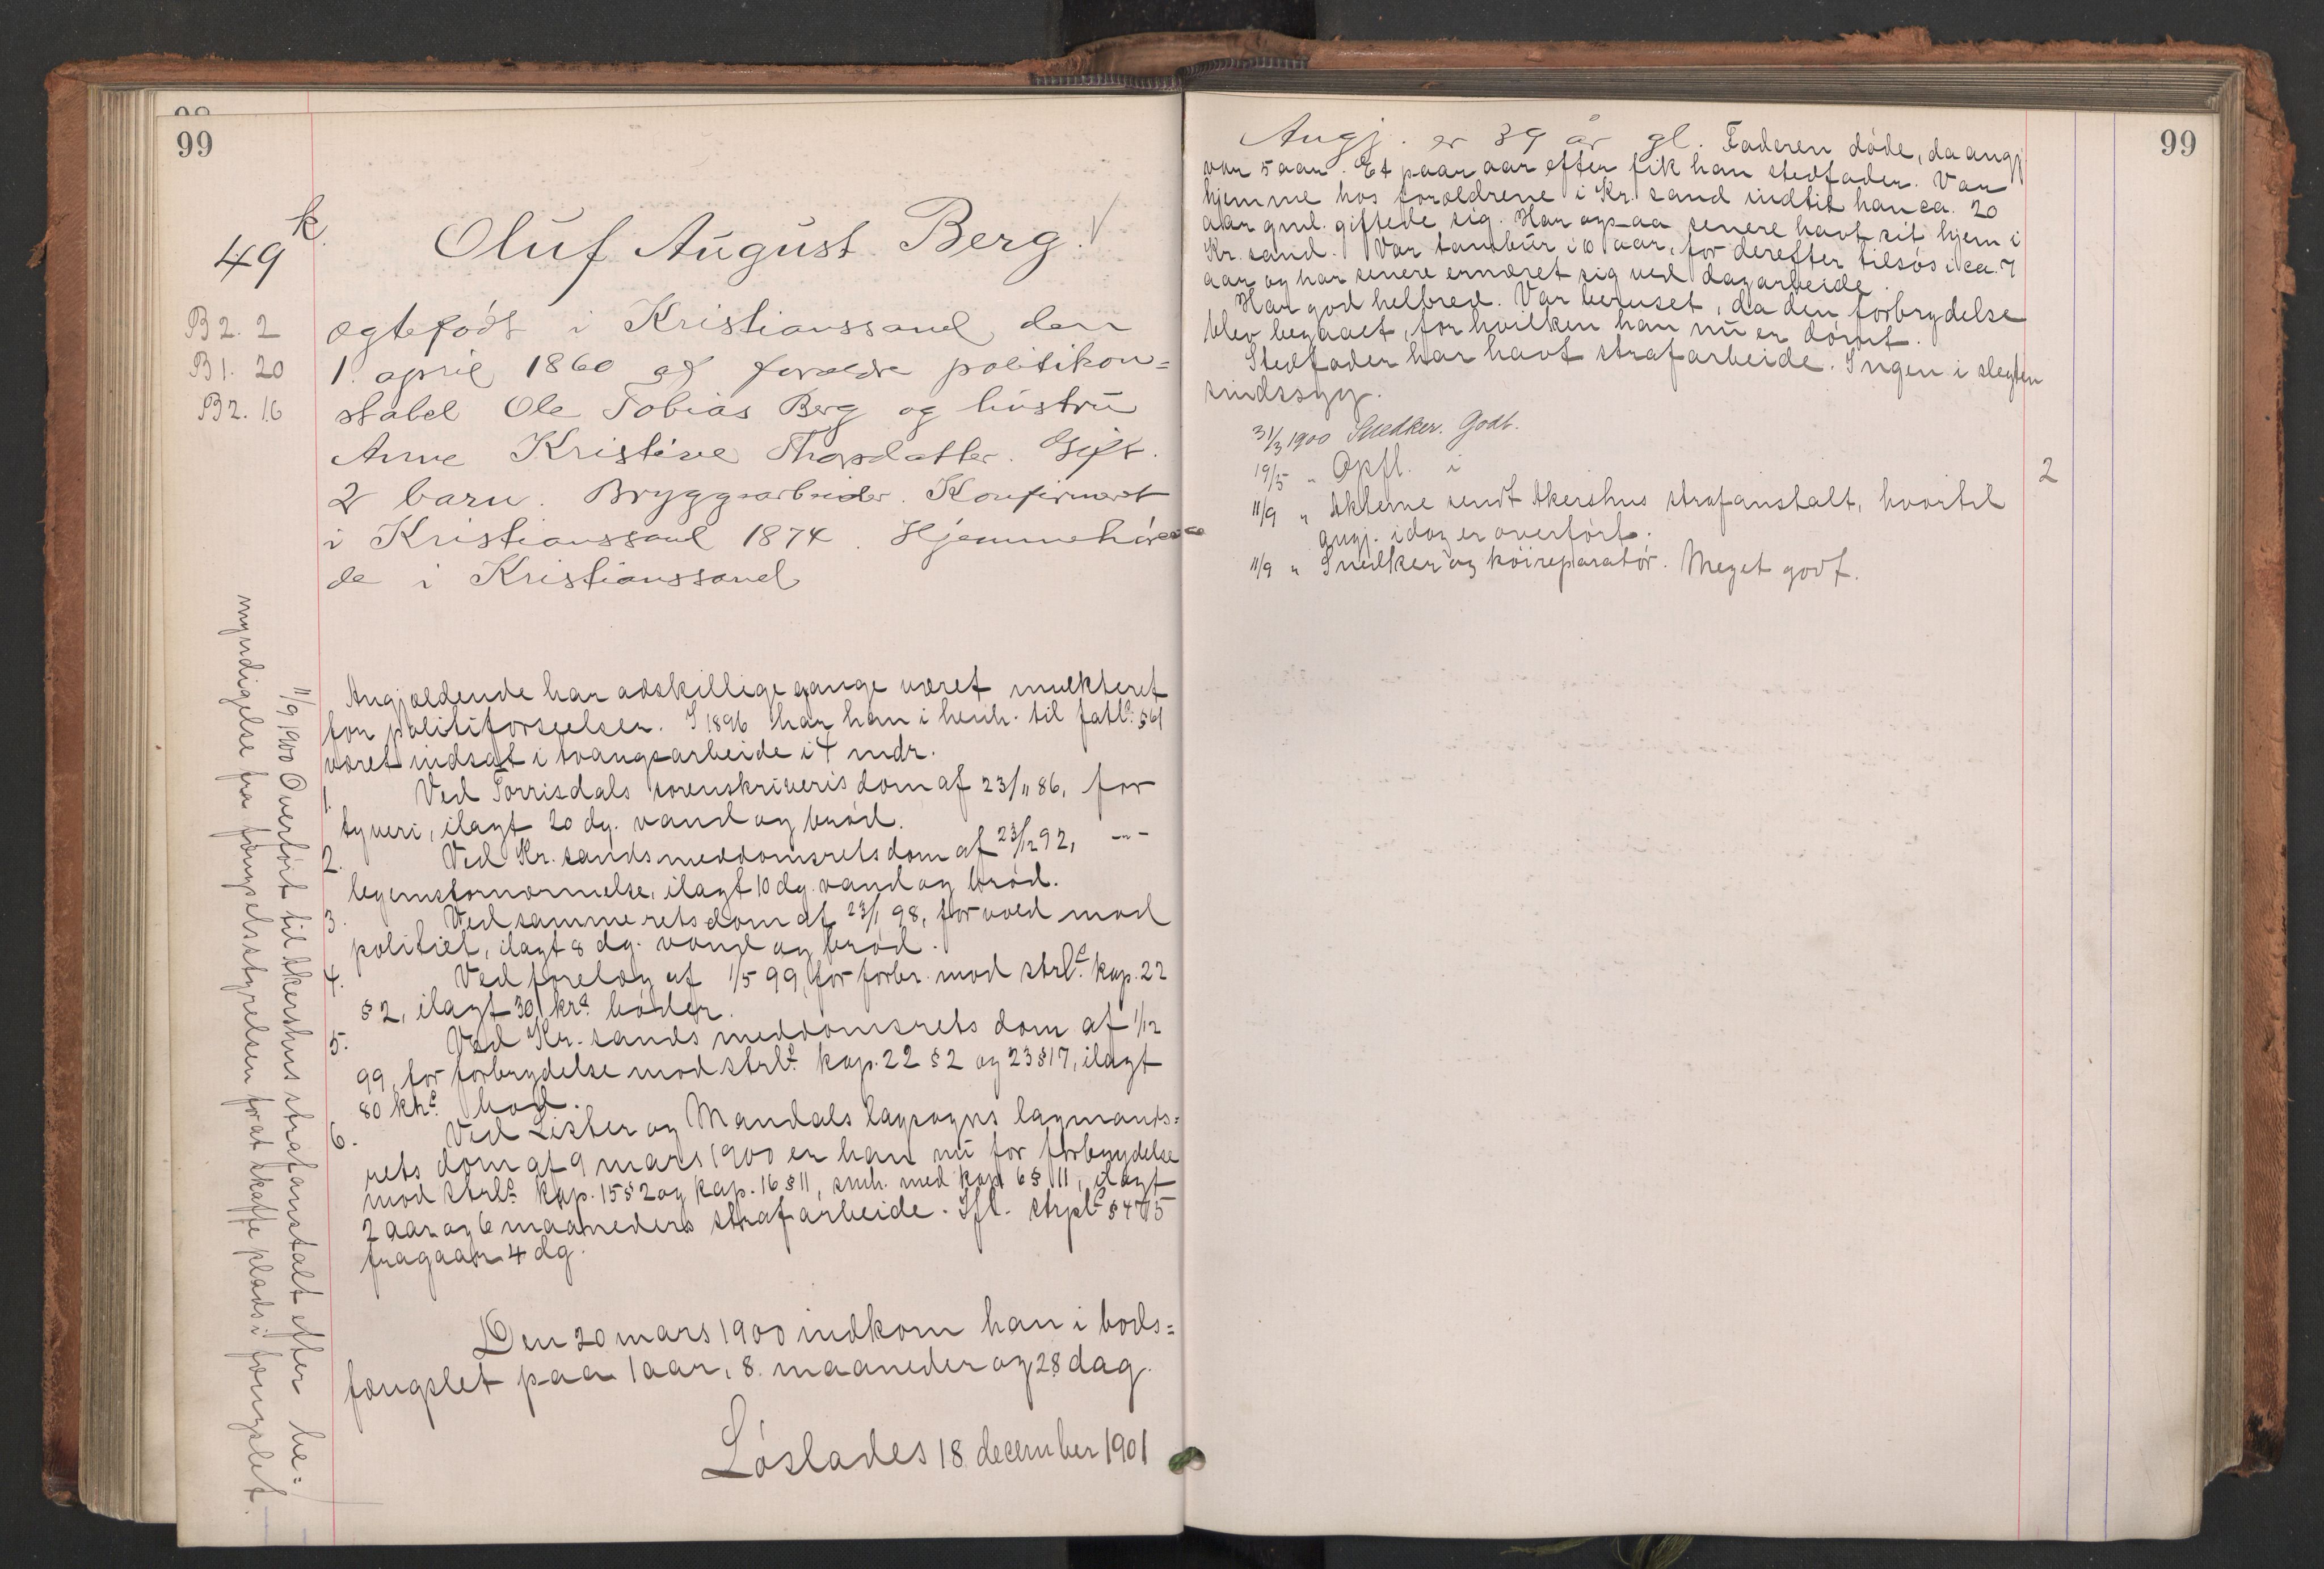 99
49 k.
B 2. 2
B 1. 20
B 2. 16
Oluf August Berg.
ægtefødt i Kristianssand den
1. april 1860 af forældre politikon=
stabel Ole Tobias Berg og hustru
Anne Kristine Thorsdatter. Gift.
2 barn. Bryggearbeider. Konfirmeret
i Kristianssand 1874. Hjemmehøren=
de i Kristianssand
Angjældende har adskillige gange været mulkteret
for politiforseelser. I 1896 har han i henh. til fatl. § 61
været indsat i tvangsarbeide i 4 mdr.
1. Ved Torrisdals sorenskriveris dom af 23/11 86, for
tyveri, ilagt 20 dg. vand og brød.
2. Ved Kr.sands meddomsrets dom af 23/12 92, —„—
legemsfornærmelse, ilagt 10 dg. vand og brød.
3. Ved samme rets dom af 23/1 98, for vold mod
politiet, ilagt 8 dg. vand og brød.
4. Ved forelæg af 1/5 99, for forbr. mod strl. kap. 22
§ 2, ilagt 30 kr. bøder.
5. Ved Kr.sands meddomsrets dom af 1/12
99, for forbrydelse mod strl. kap. 22 § 2 og 23 § 17, ilagt
80 kr. bod.
6. Ved Lister og Mandals lagsogns lagmands=
rets dom af 9 mars 1900 er han nu for forbrydelse
mod strl. kap. 15 § 2 og kap. 16 § 11, smh. med kap 6 § 11, ilagt
2 aar og 6 maaneders strafarbeide. Ifl. strpl. § 475
fragaar 4 dg.
Den 20 mars 1900 indkom han i bods=
fængslet paa 1 aar, 8 maaneder og 28 dag.
Løslades 18 december 1901
11/9 1900 Overført til Akershus strafanstalt efter be=
myndigelse fra fængselsstyrelsen forat skaffe plads i fængslet.
99
Angj. er 39 år gl. Faderen døde, da angj
var 5 aar. Et paar aar efter fik han stedfader. Var
hjemme hos forældrene i Kr.sand indtil han ca. 20
aar gml. giftede sig. Har ogsaa senere havt sit hjem i
Kr.sand. Var tambur i 10 aar, for derefter tilsøs i ca. 7
aar og har senere ernæret sig ved dagarbeide.
Har god helbred. Var beruset, da den forbrydelse
blev begaaet, for hvilken han nu er dømt.
Stedfader har havt strafarbeide. Ingen i slegten
sindssyg.
31/3 1900 Snedker. Godt.
19/5 „ Opfl. i 2
11/9 „ Akterne sendt Akershus strafanstalt, hvortil
angj. idag er overført.
11/9 „ Snedker og køireparatør. Meget godt.